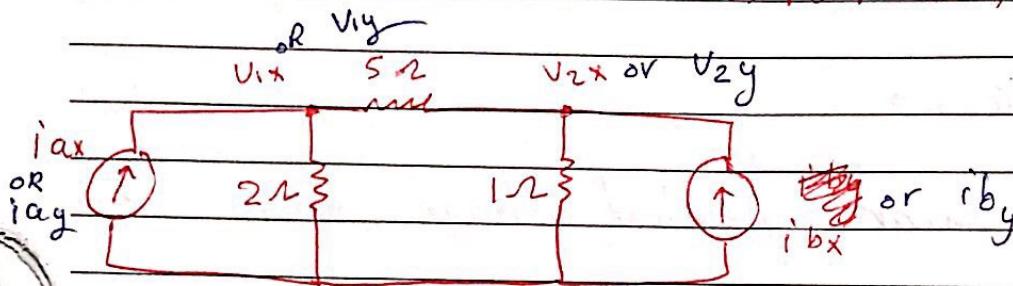 OR V1y
V1x 5Ω V2x or V2y
iax
OR
iay
2Ω 1Ω or iby
ibx